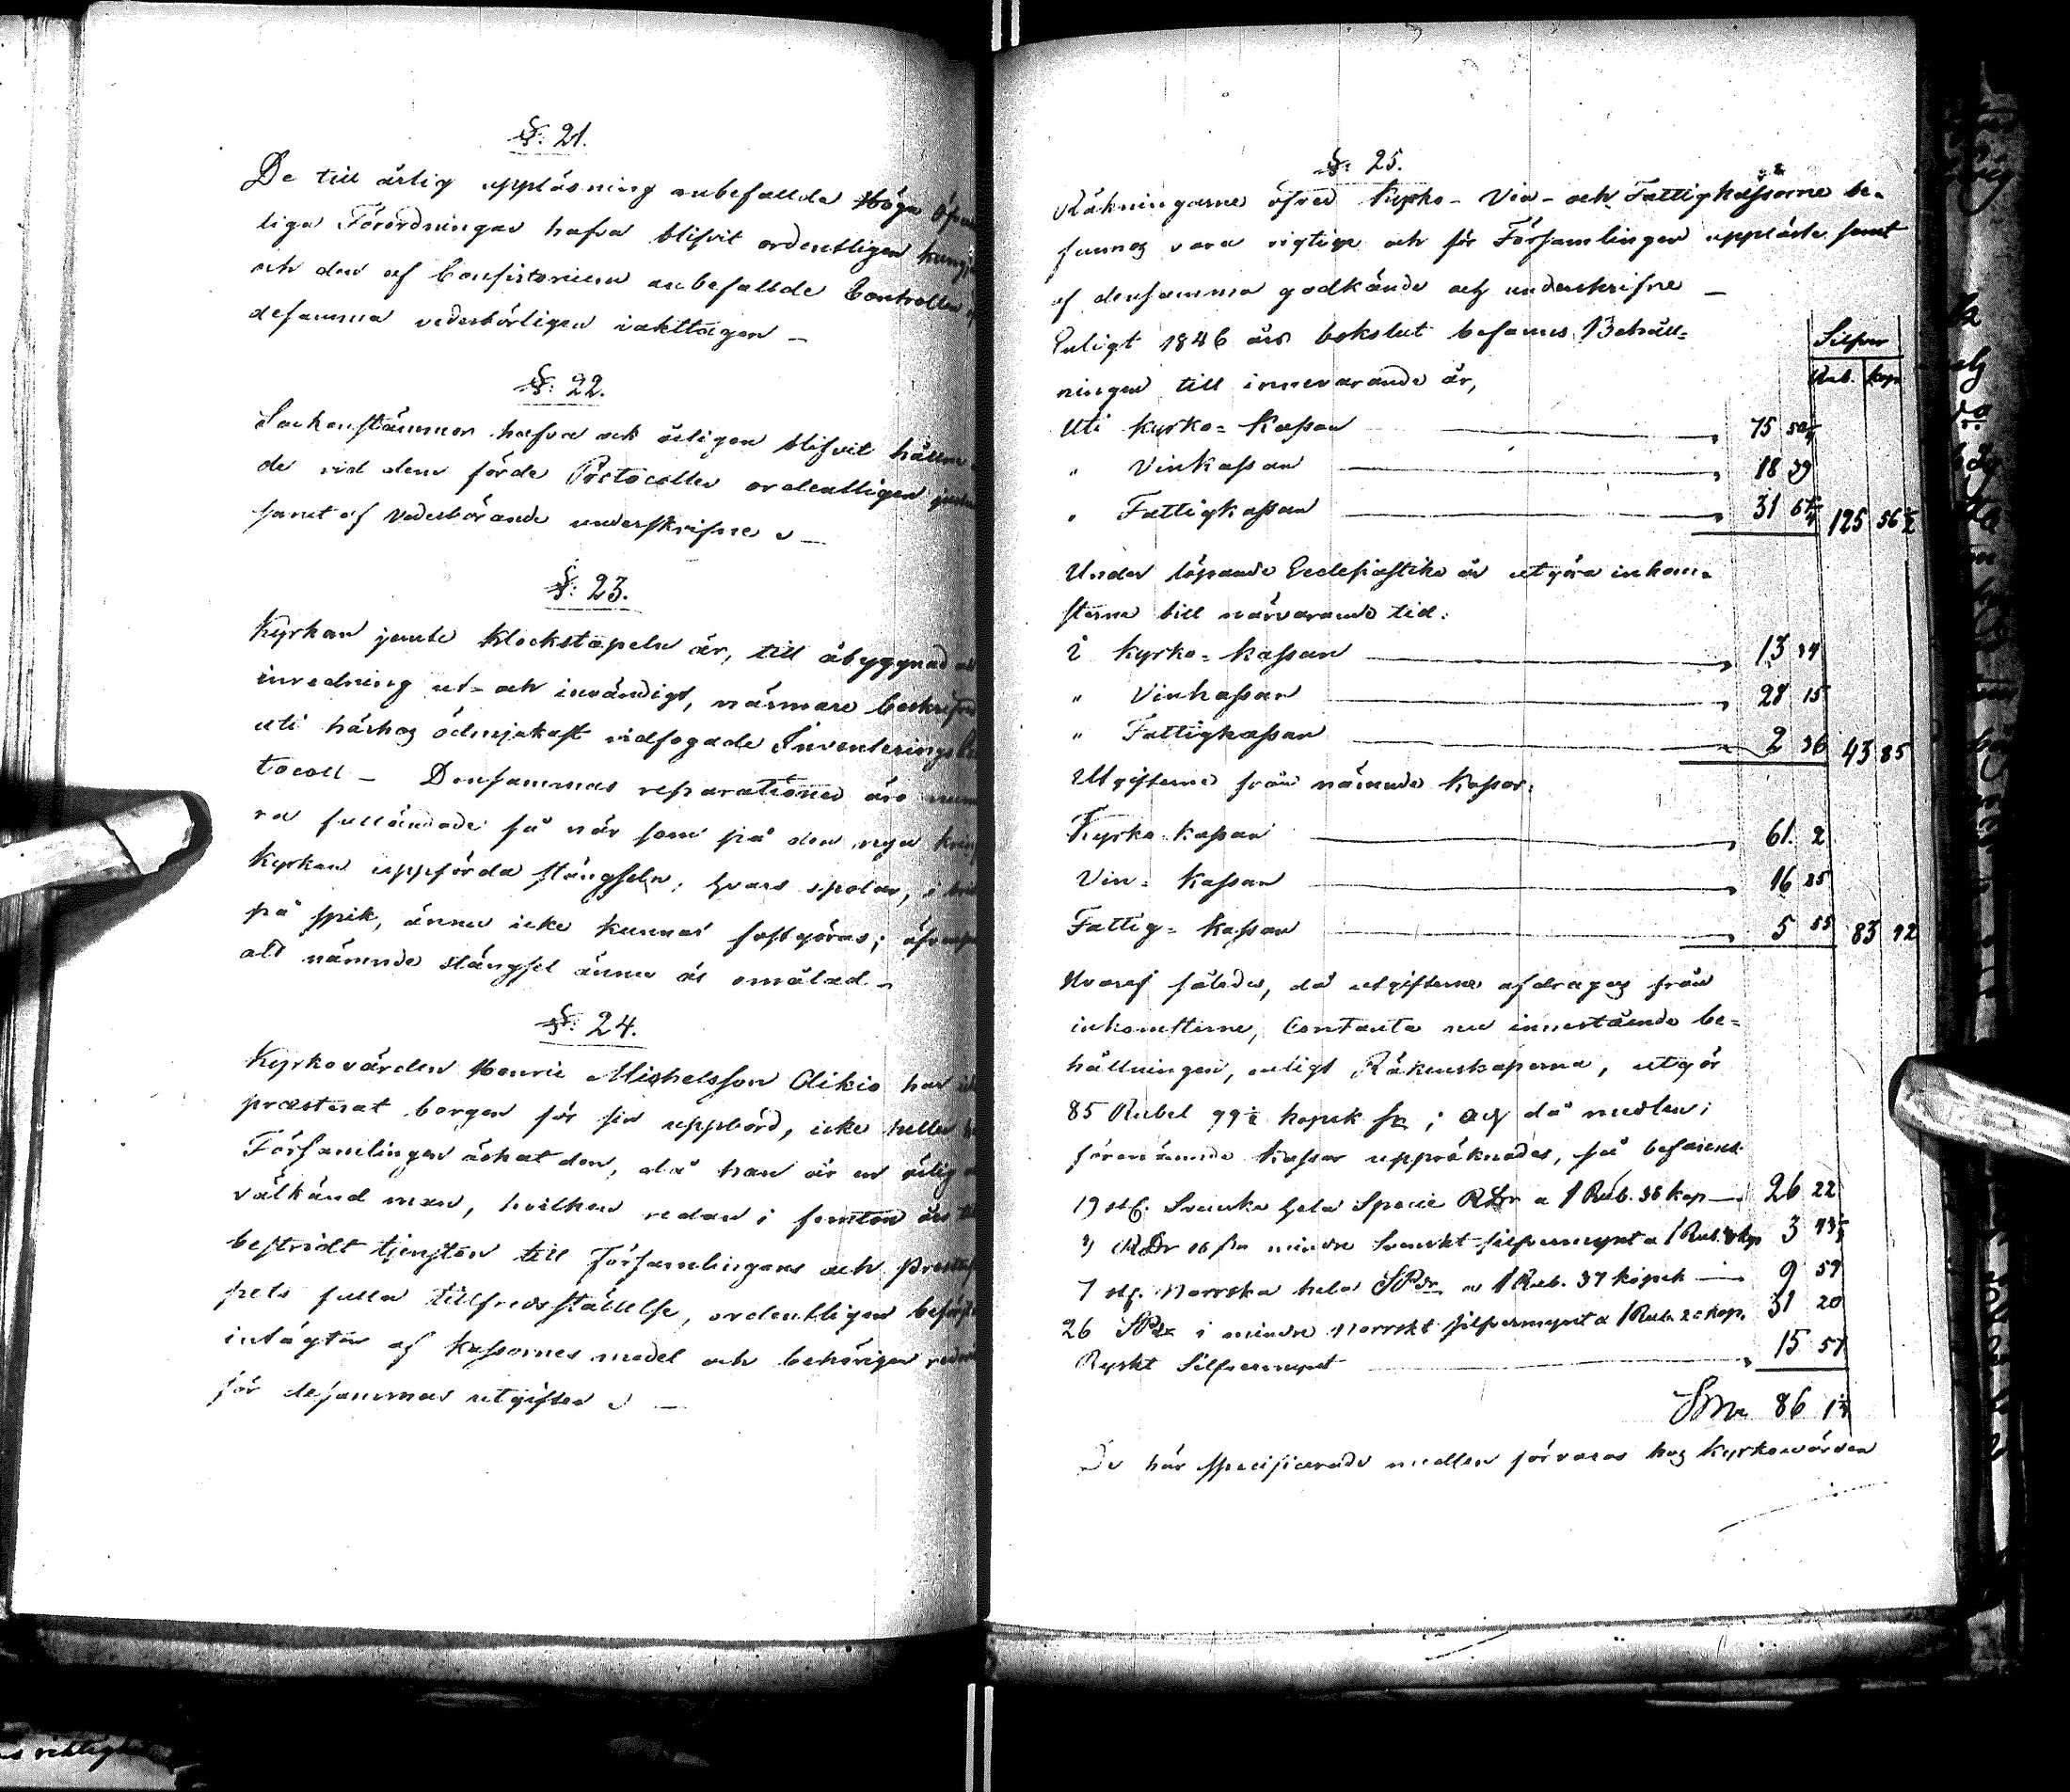 §. 21.
De till årlig uppläsning anbefallde Höga
liga Förordningar hafva blifvit ordentligen
och den af Consistorium anbefallde Controllen
desamma vederbörligen iakttagen _
§. 22.
Sockenstämmor hafva ock årligen blifvit hållne
de vid dem förde Protocoller ordentligen
samt af Vederbörande underskrifne _
§. 23.
Kyrkan jemte klockstapeln är, till åbyggnad
inredning ut- och invändigt, närmare
uti härhos ödmjukast vidfogade Inventerings
tocoll _ Densammas reparationer äro
ra fulländade så när som på den nya
Kyrkan uppförda stängseln, hvars spolar, i
på spik, ännu icke kunnat fastgöras;
att nämnde stängsel ännu är omålad _
§. 24.
Kyrkovärden Henric Michelsson Olikio har
præsterat borgen för sin uppbörd, icke heller
Församlingen äskat den, då han är en ärlig
välkänd man, hvilken redan i femton års
bestridt tjensten till Församlingens och
pets fulla tillfredsställelse, ordentligen
intägter af kassornes medel och behörigen
för desammas utgifter _
§. 25.
Räkningarne öfver Kyrko- Vin- och Fattigkassorne be-
funnos vara rigtige och för Församlingen uppläste samt
af densamma godkände och underskrifne _
Enligt 1846 års bokslut befanns Behåll-
ningen till innevarande år,
Silfver
Rub. kop
Uti Kyrko-Kassan 75
" Vinkassan 18 39
" Fattigkassan 31 125 56 1/2
Under löpande Ecclesiastike år utgöra inkom-
sterne till närvarande tid:
i Kyrko-kassan 13 34
" Vinkassan 28 15
" Fattigkassan 2 36 43 85
Utgifterne från nämnde kassor:
Kyrko-kassan 61. 2
Vin-Kassan 16 35
Fattig-Kassan 5 55 83 92
Hvaraf således, då utgifterne afdrages från
inkomsterne, Contanta nu innestående be-
hållningen, enligt Räkenskaperna, utgör
85 Rubel 99 1/2 kopek ; och då medlen i
förenämnde Kassor uppräknades, så befanns
19 st. Svenska hela Specie RDr a 1 Rub. 38 kop 26 22
RDr 16 sk mindre Svenskt silfvermynt a 1 Rub. 3
7 st. Norrska hela SRDr a 1 Rub. 37 kopek 9 59
26 SRDr i mindre Norrskt silfvermynt a 1 Rub. 20 kop. 31 20
Ryskt Silfvermynt 15 57
Sma 86
De här specificerade medlen förvaras hos Kyrkovärden